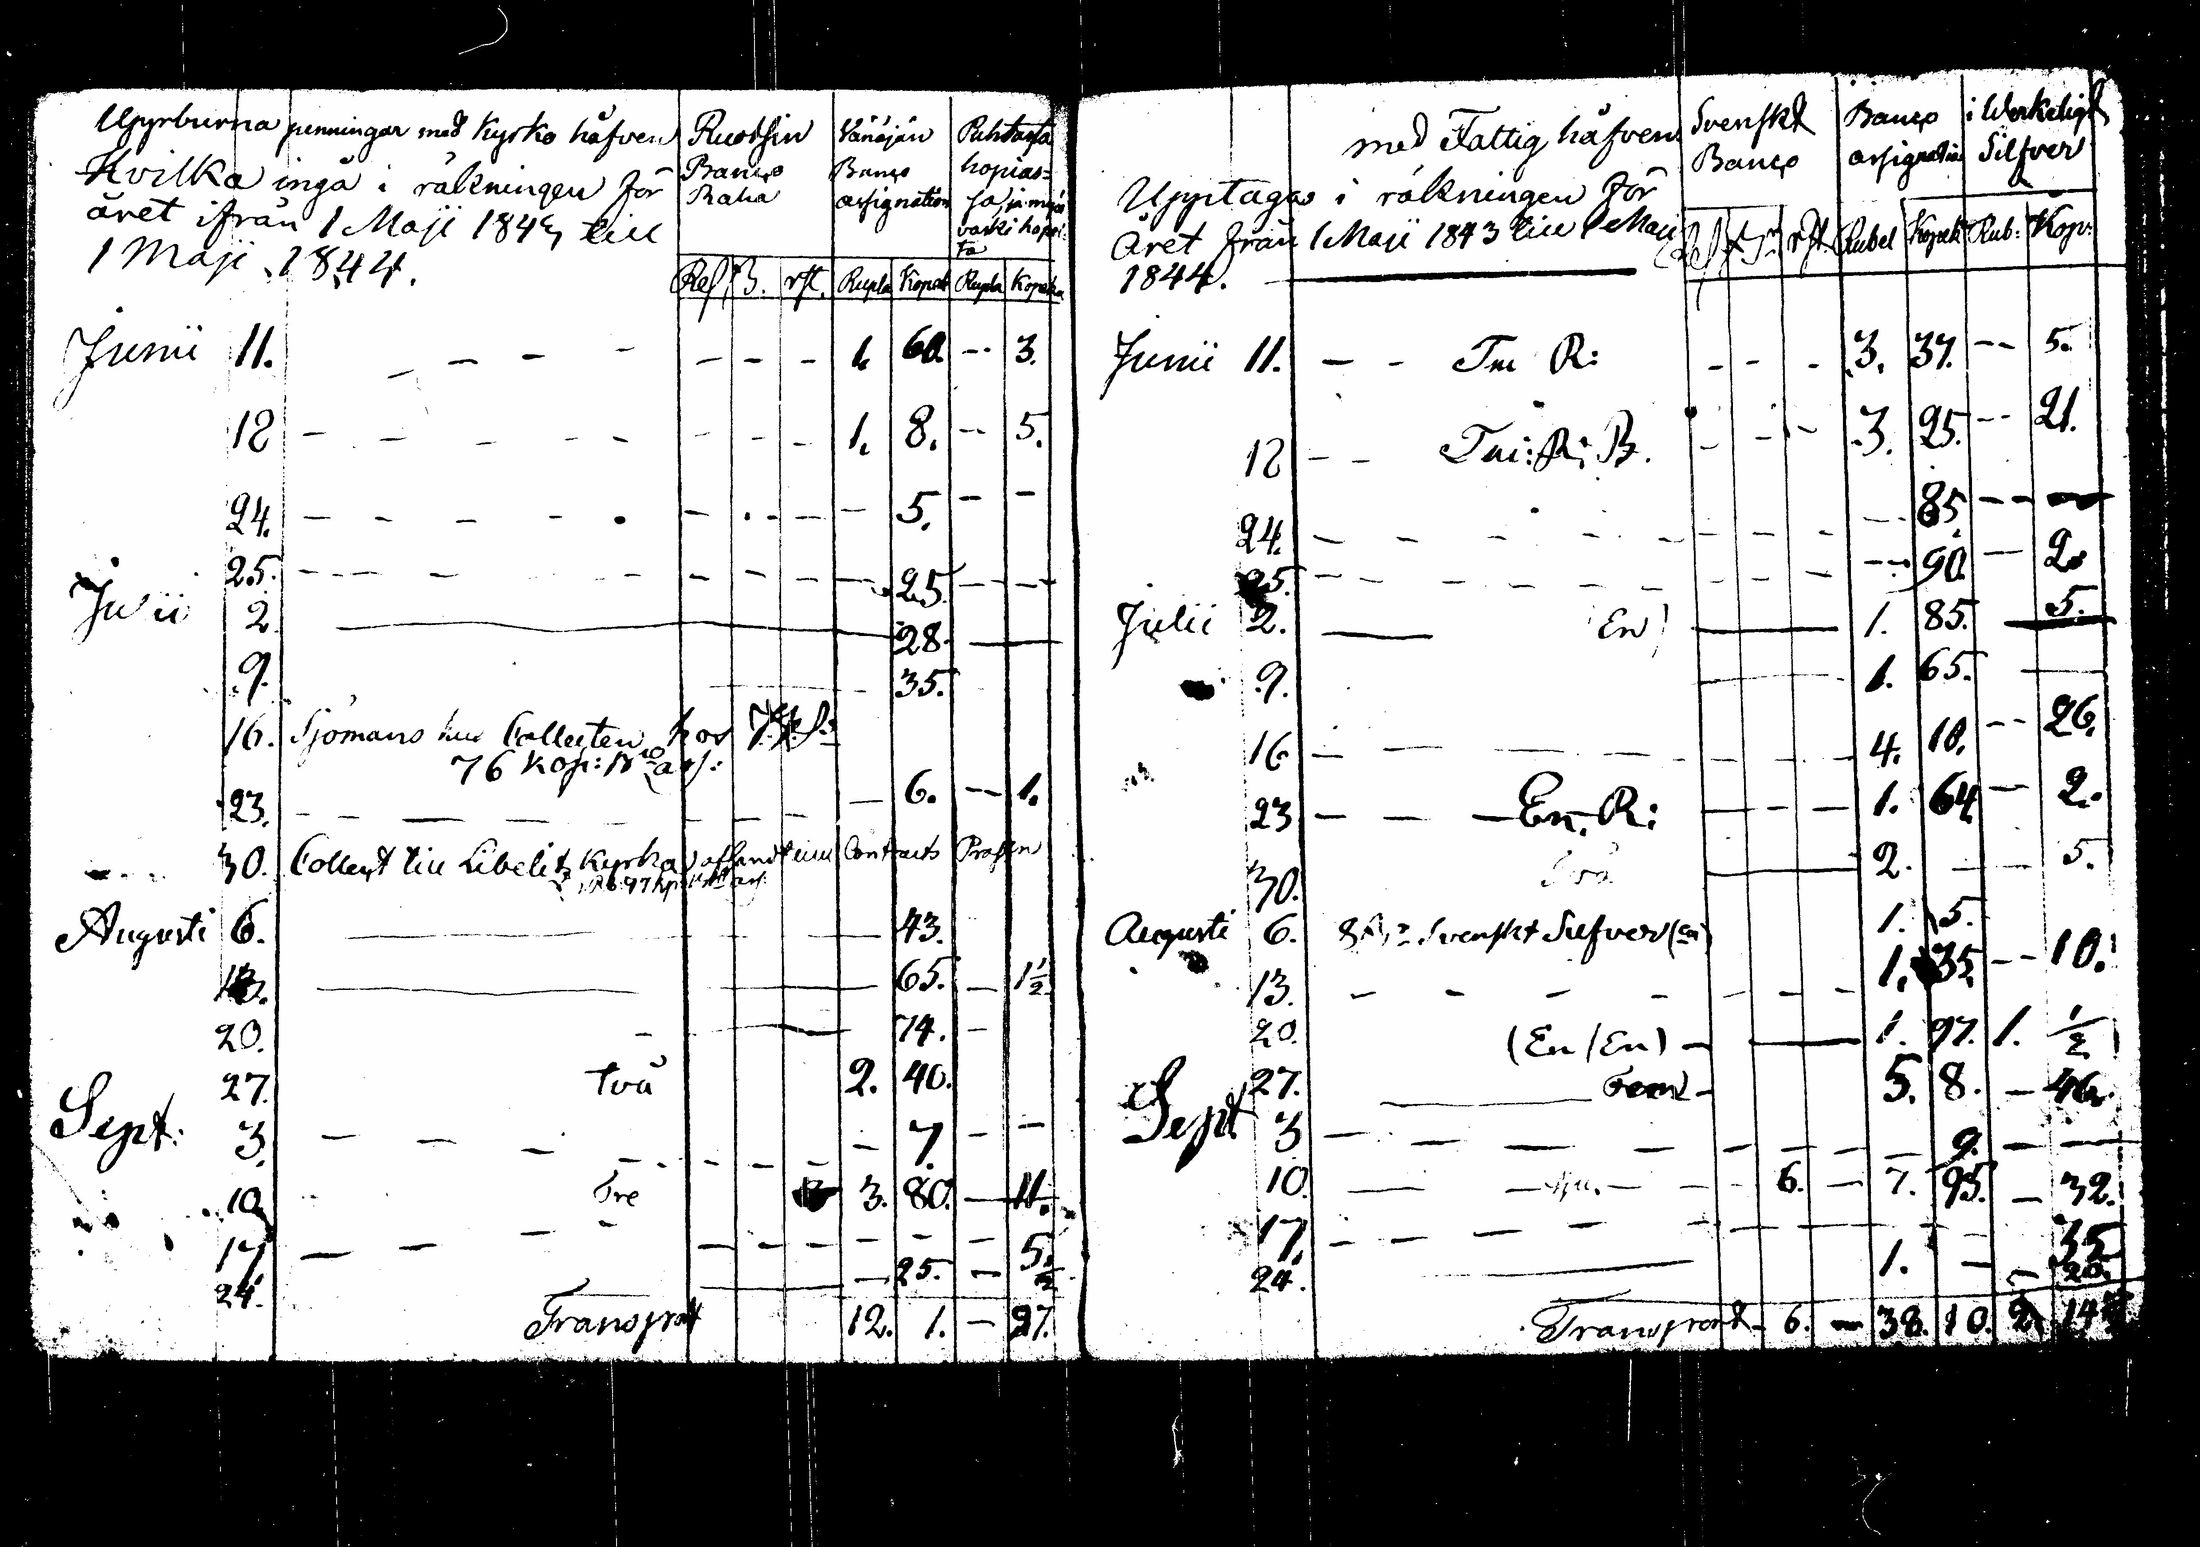 Uppburna penningar med Kyrko håfven
Hvilka ingå i räkningen för
året ifrån 1 Maji 1843 till
1 Maji 1844.
Ruotsin Banco Raha
Vänäjän Banco assignation
Puhtasta hopias=
Rupla Kopek Rupla Kopeka
Junii 11. - - - - - - 1. 60. - 3.
12 - - - - - - - - 1. 8. - 5.
24. - - - - - - - - - 5. - -
25. - - - - - - - - - 25. - -
Julii 2. 28.
9. 35.
16. Sjömans hus Collecten
76 Kop:
23. - - - - - - - - - 6. - 1.
30. Collect till Libelitz Kyrka Contracts
Augusti 6. 43.
13. 65. - 1½
20. 74. -
27. två 2. 40.
Sept: 3. - - - - - - - - 7. - -
10. Tre 3. 80. - 11.
17. - - - - - - - - - - 5½
24. - 25. -
Transport 12. 1. - 27.
med Fattig håfven
Upptagas i räkningen för
Året från 1 Maji 1843 till 1 Maji
1844.
Svenskt Banco
Banco assignation
i Werkeligt Silfver
Rubel Kopek Rub: Kop:
Junii 11. - - R: - - - 3. 37. - 5.
12 - - R: B. - - - 3. 25. - 21.
24. - - - - - - - - 85. - -
25. - - - - - - - - 90. - 2.
Julii 2. En) 1. 85. 5.
9. 1. 65.
16 - - - - - - - 4. 10. - 26.
23 - - En. R: - - - 1. 64 - 2.
30. 2. - 5.
Augusti 6. Svenskt Silfver (en) 1. 5.
13. - - - - - - - 1. 35. - 10.
20. (En/En) - 1. 97. 1. ½
27. Fem - 5. 8. - 46.
Sept 3 - - - - - - - - 9. - -
10. - - - 6. - 7. 95. - 32.
17. - - - - - - - - - 35
24. 1. - - 20.
Transport - 6. - 38. 10. 2.